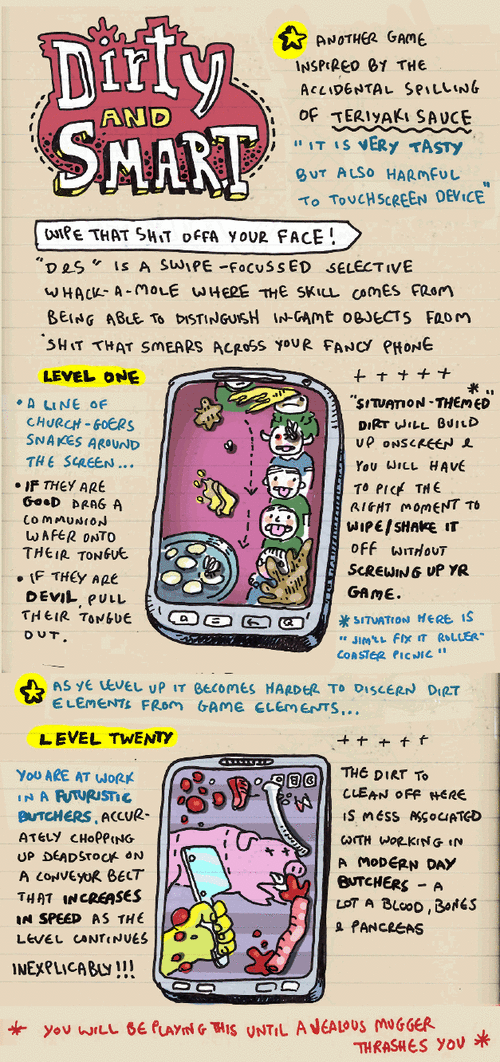 Dirty
AND
SMART
ANOTHER GAME
INSPIRED BY THE
ACCIDENTAL SPILLING
OF TERIYAKI SAUCE
"IT IS VERY TASTY
BUT ALSO HARMFUL
TO TOUCHSCREEN DEVICE"
WIPE THAT SHIT OFFA YOUR FACE!
"D&S" IS A SWIPE-FOCUSSED SELECTIVE
WHACK-A-MOLE WHERE THE SKILL COMES FROM
BEING ABLE TO DISTINGUISH IN-GAME OBJECTS FROM
SHIT THAT SMEARS ACROSS YOUR FANCY PHONE
LEVEL ONE
• A LINE OF
CHURCH-GOERS
SNAKES AROUND
THE SCREEN...
• IF THEY ARE
GOOD DRAG A
COMMUNION
WAFER ONTO
THEIR TONGUE
• IF THEY ARE
DEVIL, PULL
THEIR TONGUE
OUT.
+ + + + +
"SITUATION-THEMED*"
DIRT WILL BUILD
UP ONSCREEN &
YOU WILL HAVE
TO PICK THE
RIGHT MOMENT TO
WIPE/SHAKE IT
OFF WITHOUT
SCREWING UP YR
GAME.
* SITUATION HERE IS
"JIM'LL FIX IT ROLLER-
COASTER PICNIC"
AS YE LEVEL UP IT BECOMES HARDER TO DISCERN DIRT
ELEMENTS FROM GAME ELEMENTS...
LEVEL TWENTY
YOU ARE AT WORK
IN A FUTURISTIC
BUTCHERS, ACCUR-
ATELY CHOPPING
UP DEADSTOCK ON
A CONVEYOR BELT
THAT INCREASES
IN SPEED AS THE
LEVEL CONTINUES
INEXPLICABLY!!!
+ + + +
THE DIRT TO
CLEAN OFF HERE
IS MESS ASSOCIATED
WITH WORKING IN
A MODERN DAY
BUTCHERS - A
LOT A BLOOD, BONES
& PANCREAS
* YOU WILL BE PLAYING THIS UNTIL A JEALOUS MUGGER
THRASHES YOU *